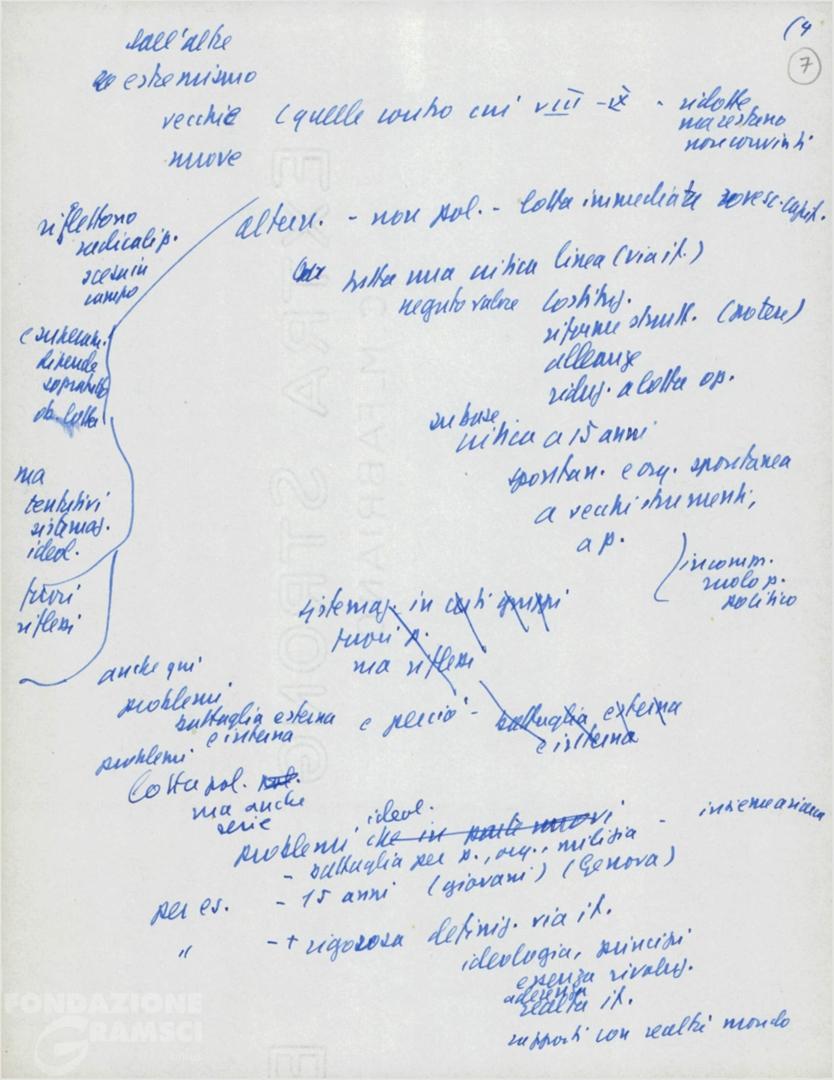 (4
7
dall'altro
estremismo
vecchie (quelle contro cui VIII - IX - ridotte
ma restano
non convinti
nuove
riflettono
radicalip.
scesa in
campo
altern. - non pol. - lotta immediata rovesc. capit.
tutta una critica linea (via it.)
negato valore Costituz.
riforme strutt. (potere)
alleanze
riduz. a lotta op.
e superam.
dipende
sopratutto
da lotta
su base
critica a 15 anni
spontan. e org. spontanea
a vecchi strumenti,
a p.
incomp.
ruolo p.
politico
ma
tentativi
sistemaz.
ideol.
fuori
riflessi
sistemaz. in certi gruppi
fuori p.
ma riflessi
anche qui
problemi
battaglia esterna
e interna
e perciò - battaglia esterna
e interna
problemi
Lotta pol. pol.
ma anche
serie
ideol.
problemi che in parte nuovi -
- battaglia per p., org., milizia
per es. - 15 anni (giovani) (Genova)
" - + rigorosa definiz. via it.
ideologia, principi
essenza rivoluz.
aderenza
realtà it.
rapporti con realtà mondo
FONDAZIONE
GRAMSCI
EXTRA STRONG
C.M. FABRIANO